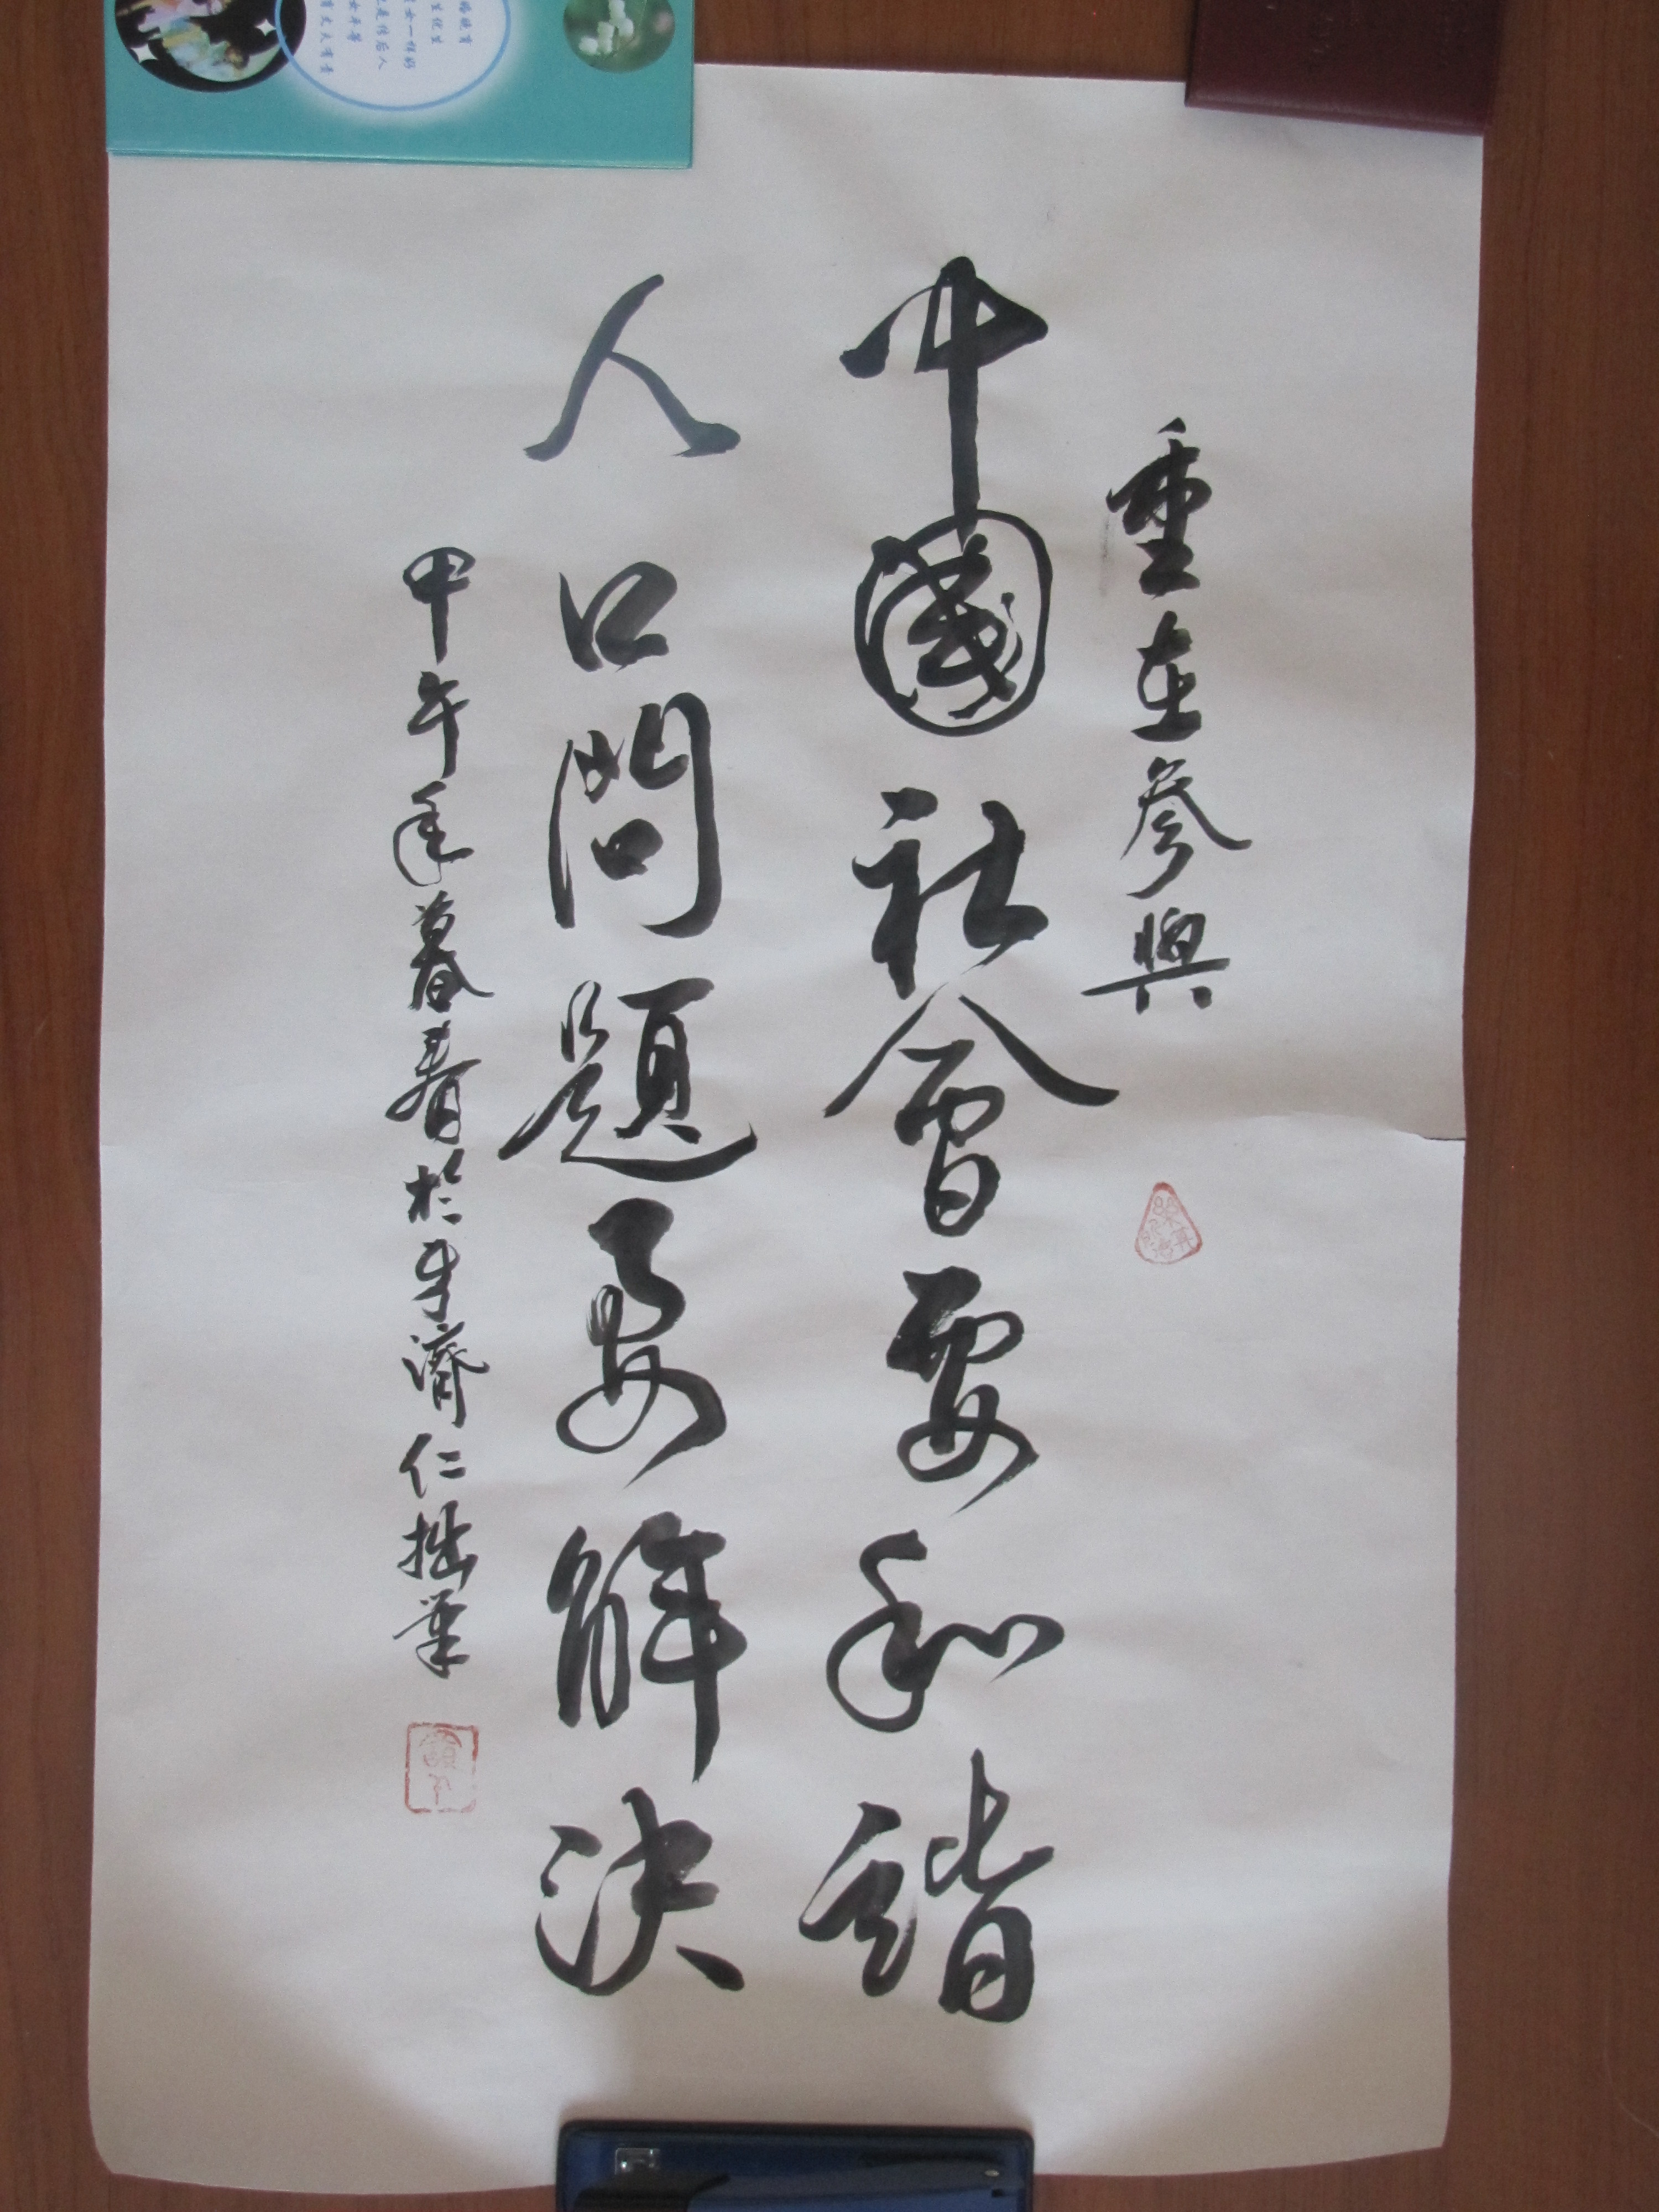 重在參與
中國社會要和諧
人口問題要解決
甲午年暮春於李濟仁拙筆